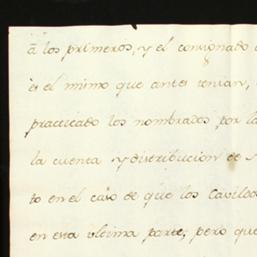 â los primeros, y el consignado
es el mismo que antes tenian,
practicado los nombrados por la
la cuenta y distribucion de
to en el caso de que los Cavildo
en esta ultima parte, pero que